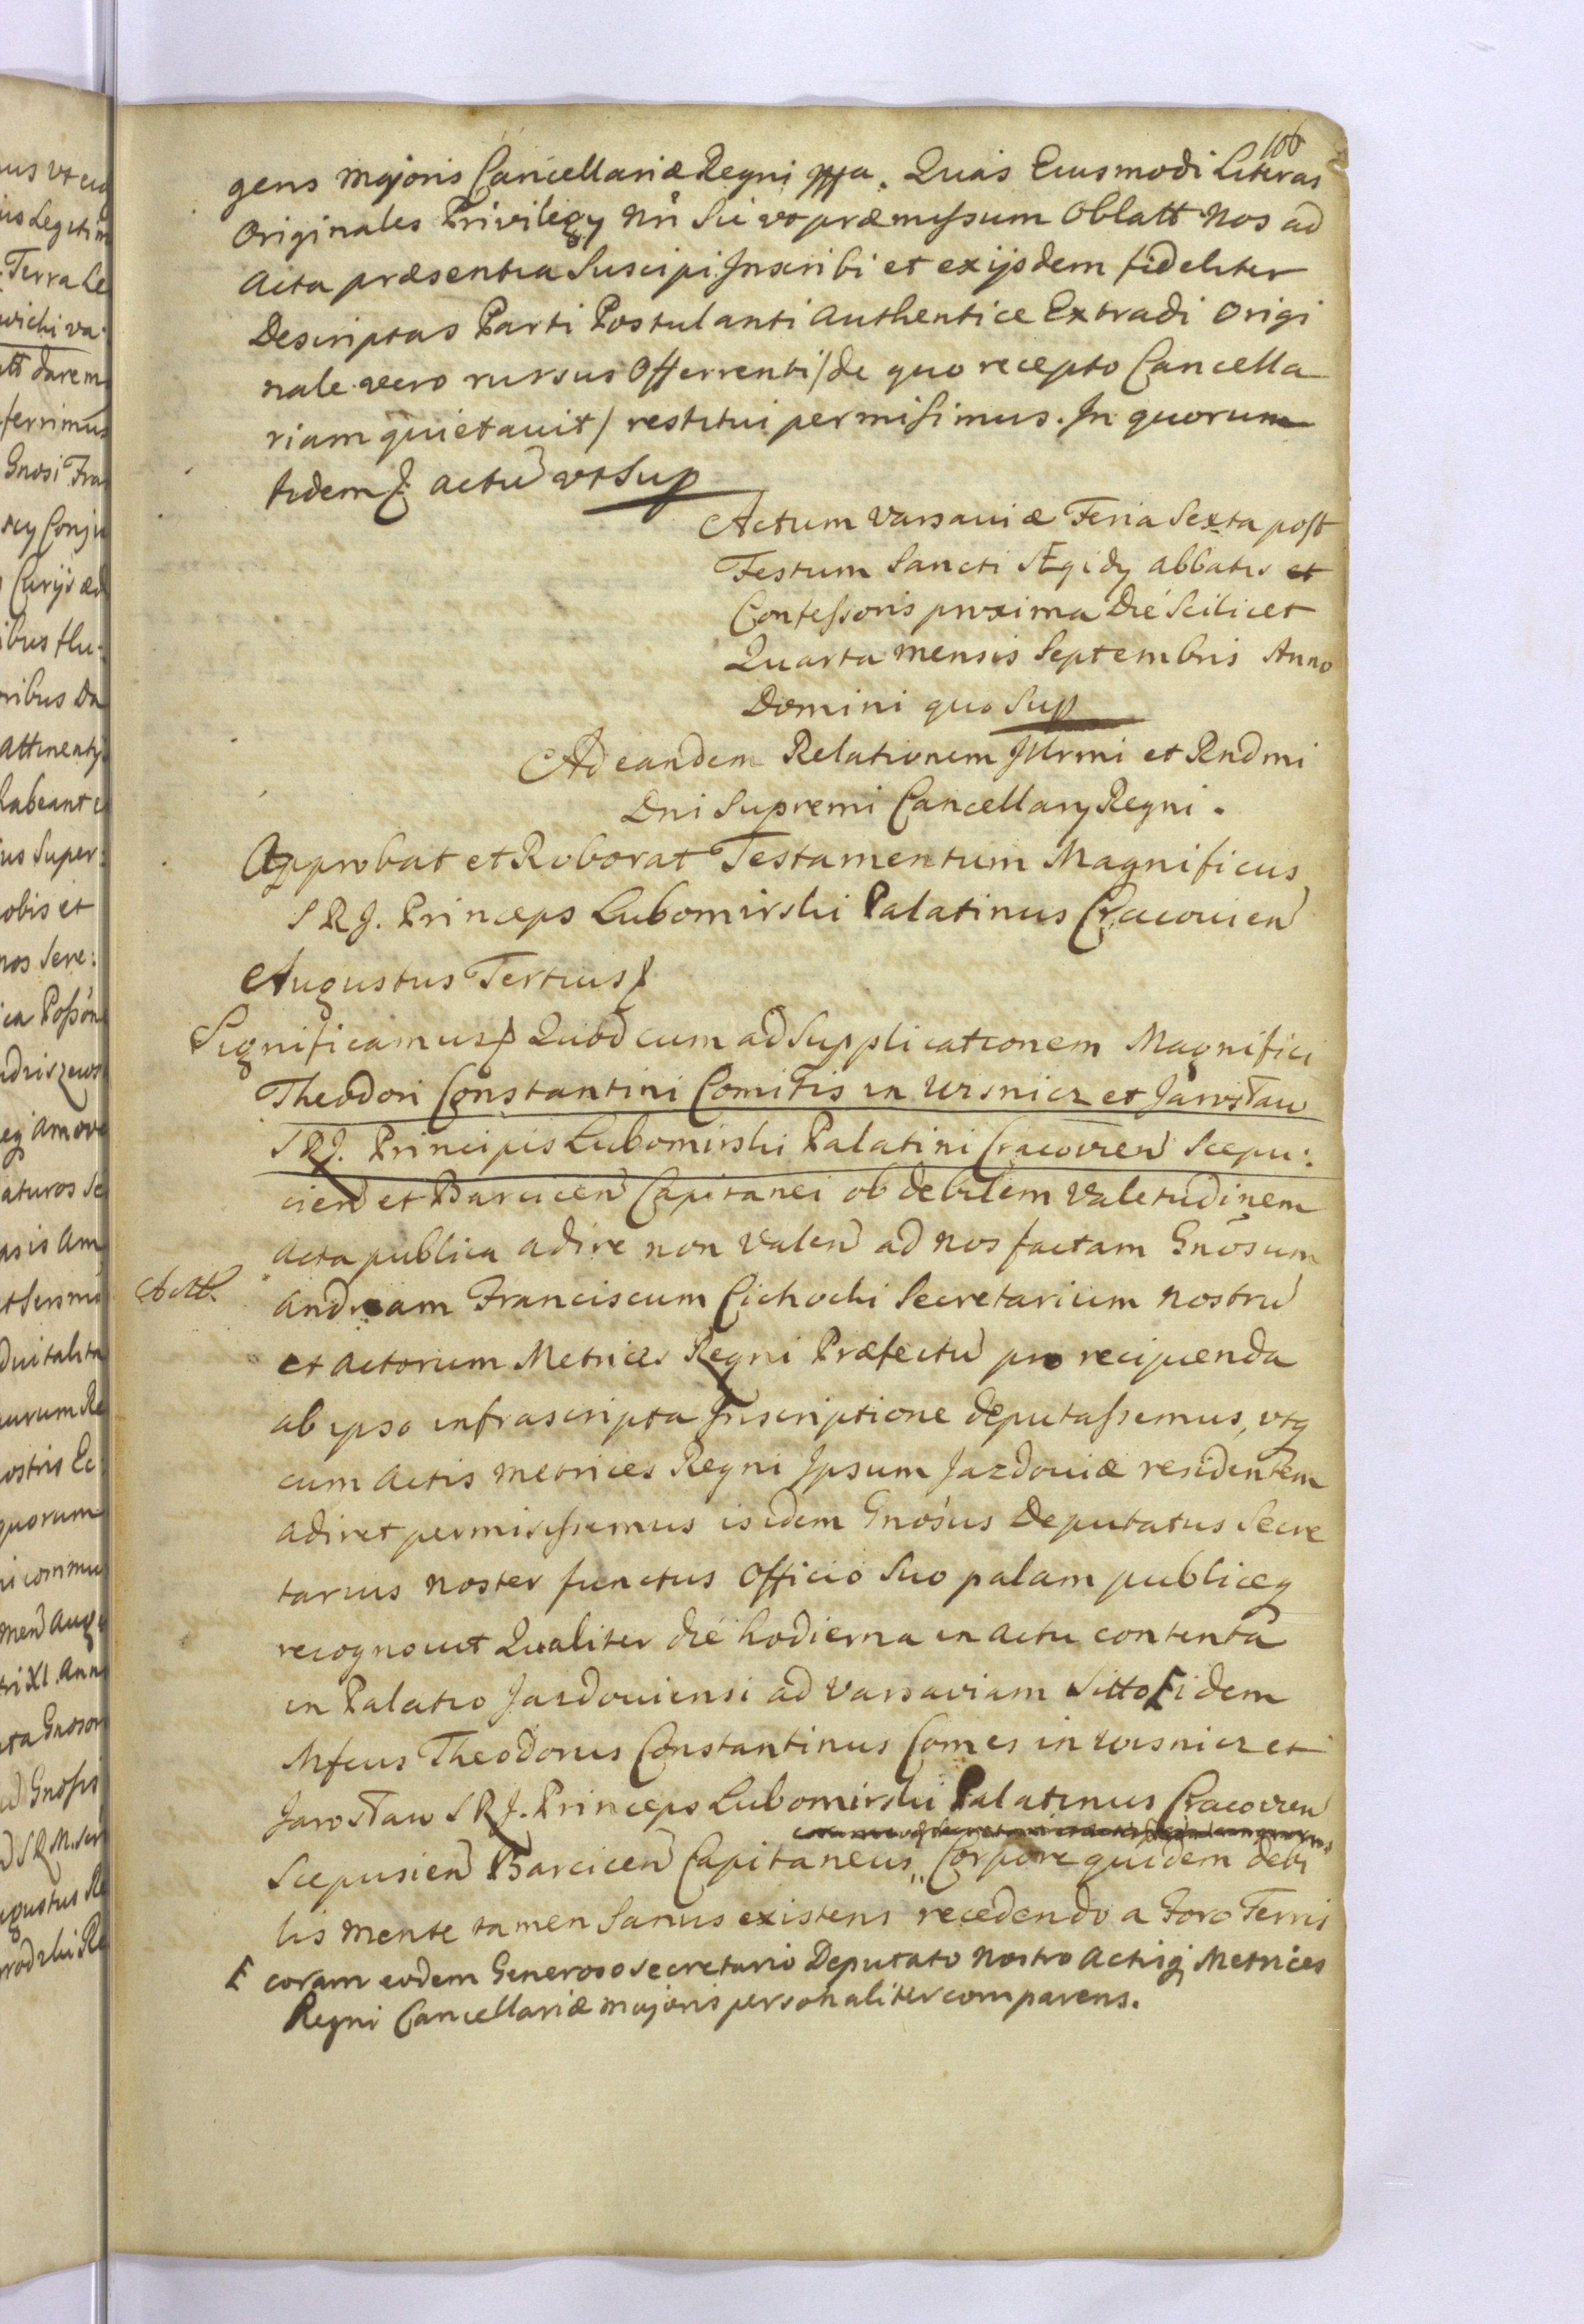 106
gens Majoris Cancellariæ Regni mppa. Quas Eiusmodi Literas
Originales Privilegy Nri Sic vt præmissum Oblatt Nos ad
Acta præsentia Suscipi Inscribi et ex ijsdem fideliter
Descriptas Parti Postulanti Authentice Extradi Origi
nale vero rursus Offerrenti /de quo recepto Cancella
riam quietauit/ restitui permisimus. In quorum
fidem & actu vt Sup
Actum Varsaviæ Feria Sexta post
Festum Sancti Ægidy Abbatis et
Confessoris proxima Die Scilicet
Quarta mensis Septembris Anno
Domini quo Sup
Ad eandem Relationem Illrmi et Rndmi
Dni Supremi Cancellary Regni.
Approbat et Roborat Testamentum Magnificus
S R J. Princeps Lubomirski Palatinus Cracouien
Augustus Tertius &
Significamus & Quod cum ad Supplicationem Magnifici
Theodori Constantini Comitis in Wisnicz et Jarosław
S R J. Principis Lubomirski Palatini Cracovien Scepu:
cien et Barcicen Capitanei ob debilem Valetudinem
Acta publica adire non Valen ad nos factam Gnosum
Actt.
Andream Franciscum Cichocki Secretarium Nostru
et Actorum Metrices Regni Præfectu pro recipienda
ab ipso infrascripta Inscriptione deputassemus, vtq
cum Actis Metrices Regni Ipsum Jazdouiæ residentem
adiret permisissemus isidem Gnosus Deputatus Secre
tarius Noster functus Officio Suo palam publiceq
recognouit Qualiter die hodierna in actu contenta
in Palatio Jazdouiensi ad Varsaviam Sitto F idem
Mfcus Theodorus Constantinus Comes in Wisnicz et
Jarosław S R J. Princeps Lubomirski Palatinus Cracovien
Scepusien Barcicen Capitaneus „ Corpore quidem debi
lis mente tamen Sanus existens recedendo a Foro Terris
F coram eodem Generoso Secretario Deputato Nostro Actisq Metrices
Regni Cancellariæ Majoris personaliter comparens.